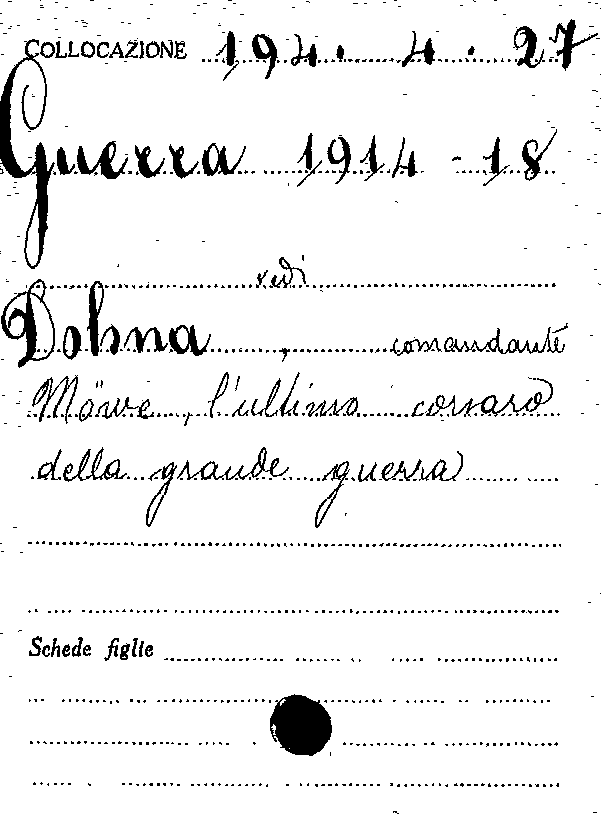 COLLOCAZIONE 194. 4. 27
Guerra 1914-18
vedi
Dohna, comandante
Möwe, l'ultimo corsaro
della grande guerra
Schede figlie